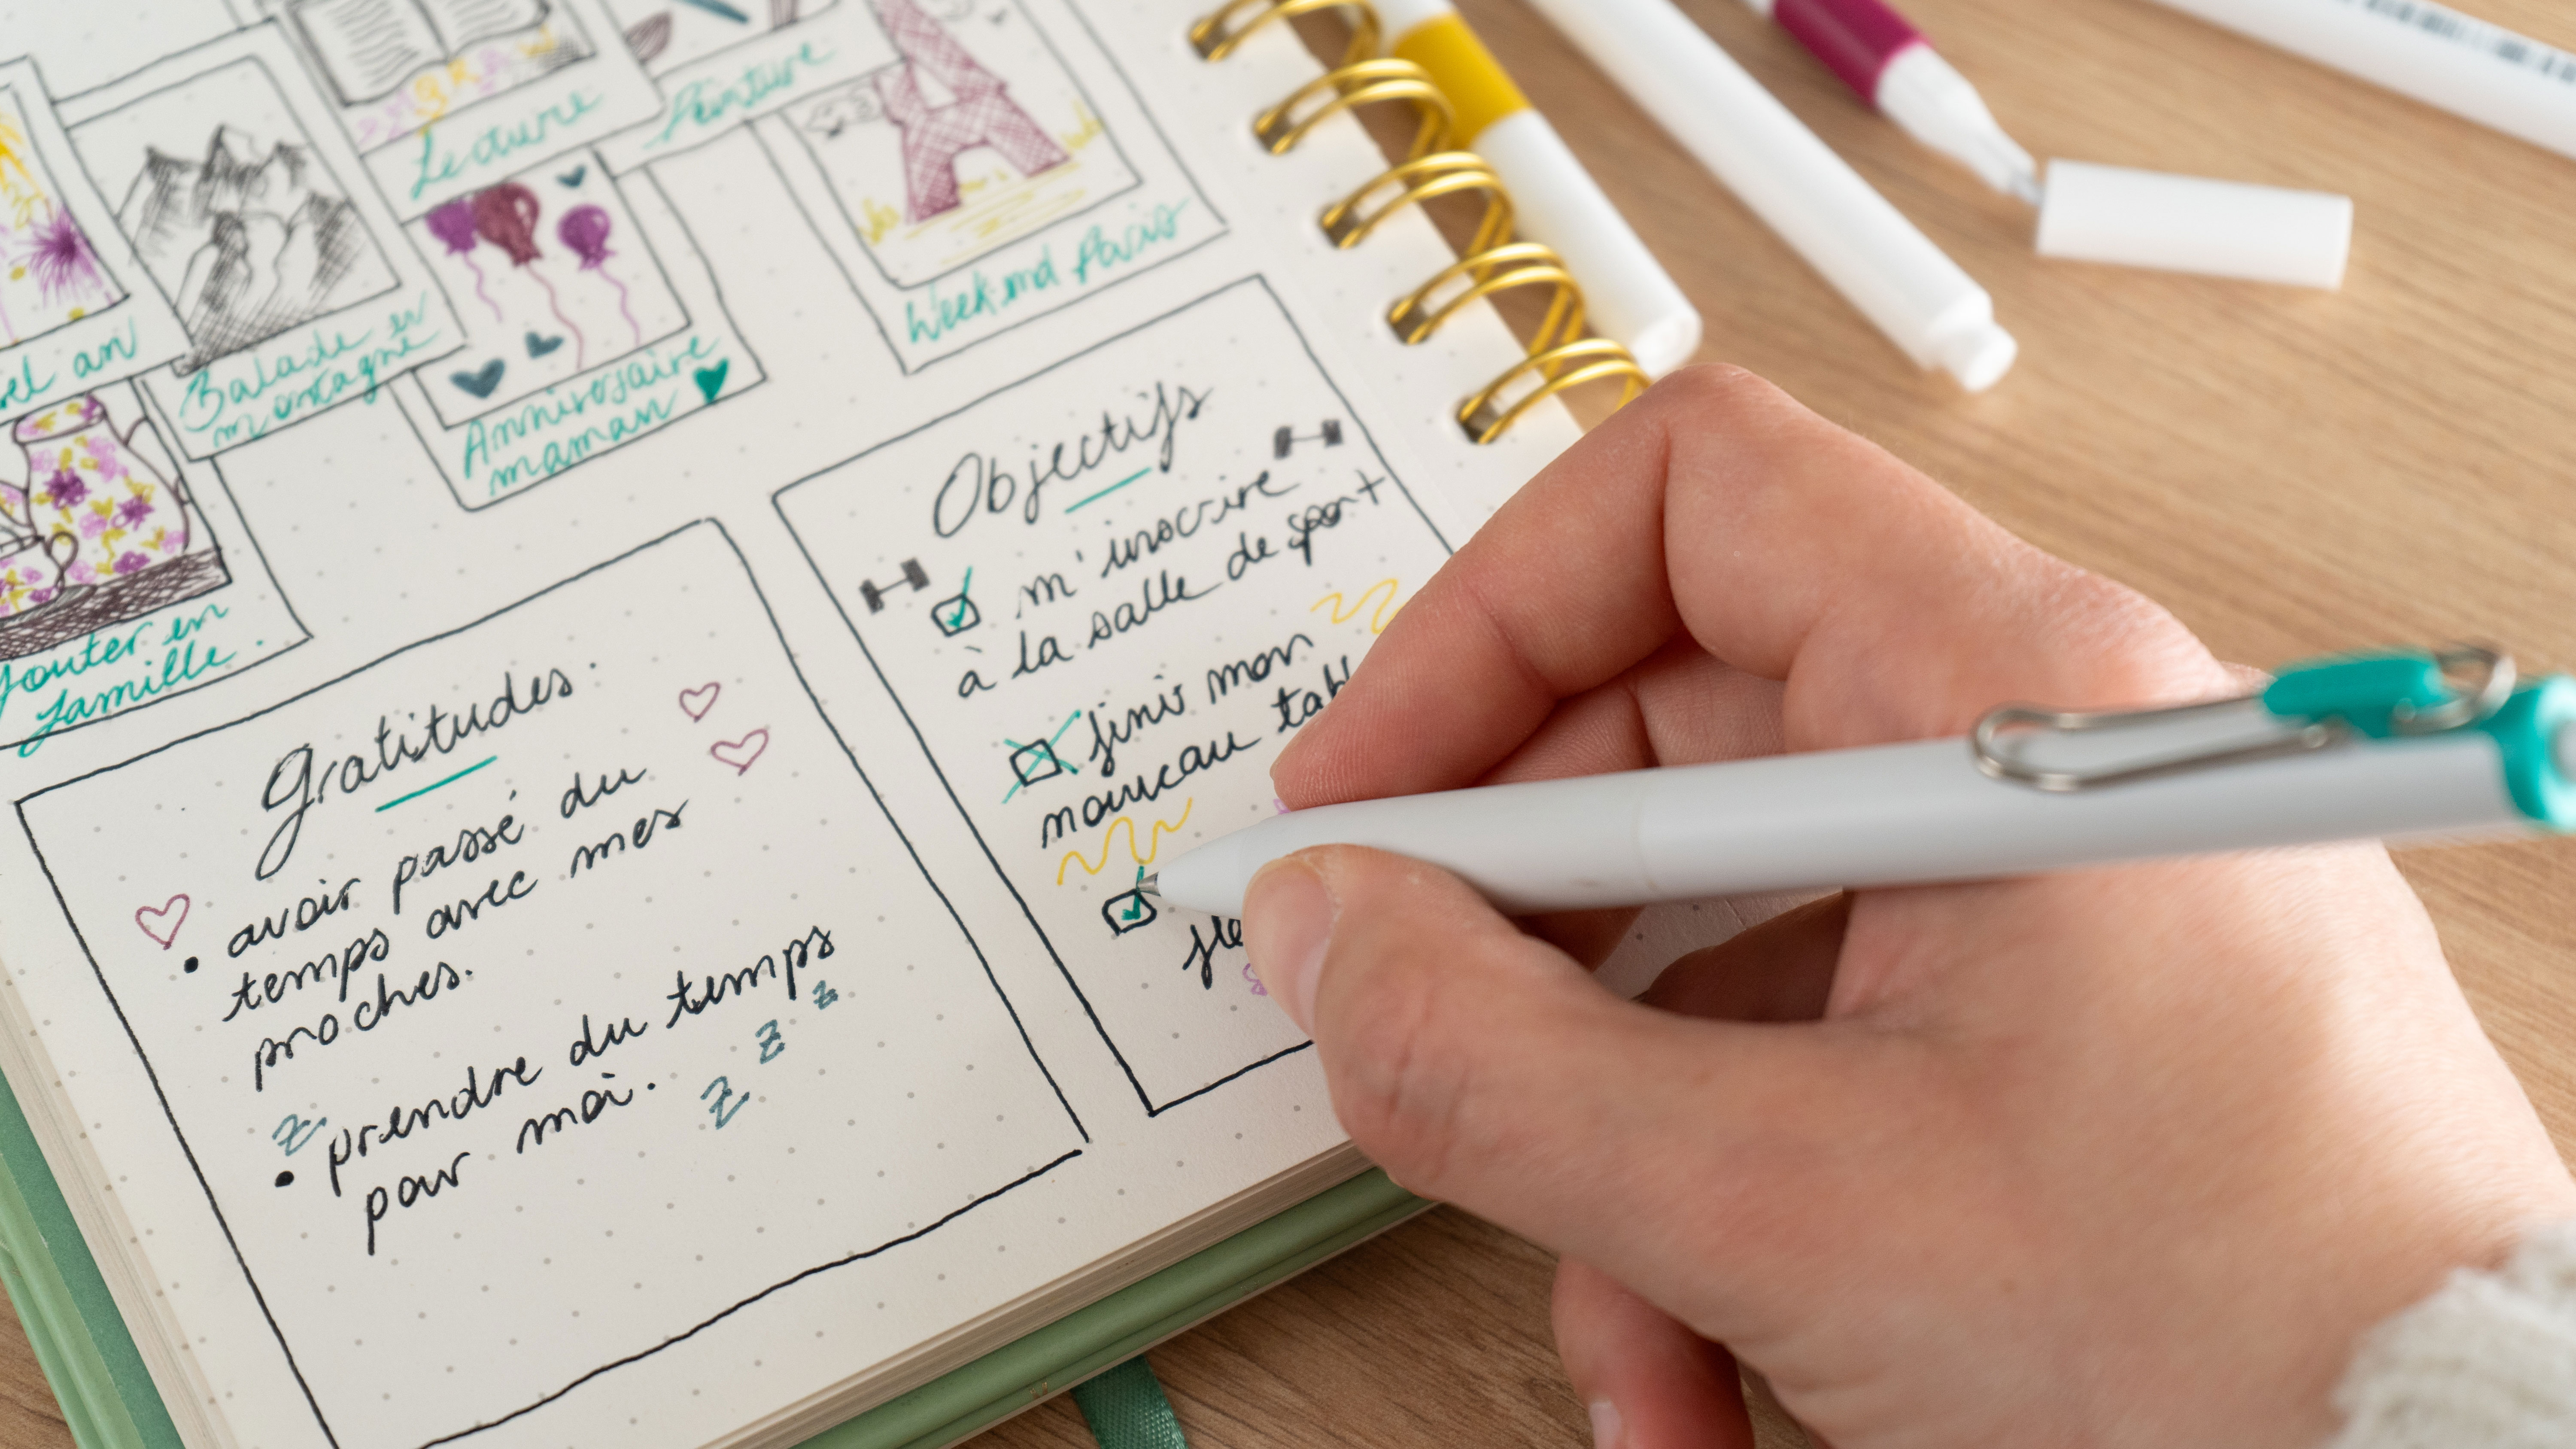 Lecture
Peinture
an
Balade en
montagne
Anniversaire
maman
Week-end Paris
gouter en
famille.
Objectifs
m'inscrire
à la salle de sport
finir mon
nouveau
Gratitudes.
• avoir passé du
temps avec mes
proches.
z z z z
• prendre du temps
pour moi.